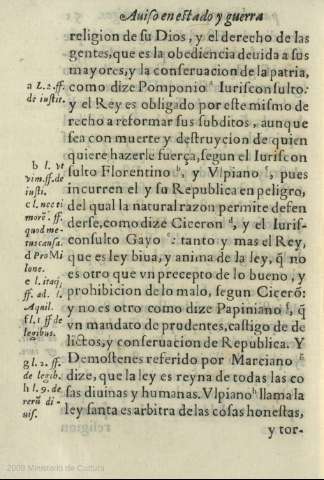 Auiso en estado y guerra
religion de su Dios, y el derecho de las
gentes, que es la obediencia deuida a sus
mayores, y la conseruacion de la patria,
a L. 2. ff.
de iustit.
como dize Pomponio ª Iurisconsulto:
y el Rey es obligado por este mismo de
recho a reformar sus subditos, aunque
sea con muerte y destruycion de quien
quiere hazerle fuerça, segun el Iuriscon
b l. vt
vim. ff. de
iusti.
c l. nec ti
morē. ff.
quod me-
tus causa.
d Pro Mi
lone.
e l. itaq;
ff. ad. l.
Aquil.
f l. 1 ff de
legibus.
sulto Florentino b, y Vlpiano c, pues
incurren el y su Republica en peligro,
del qual la natural razon permite defen
derse, como dize Ciceron d, y el Iuris-
consulto Gayo e: tanto y mas el Rey,
que es ley biua, y anima de la ley, q̃ no
es otro que vn precepto de lo bueno, y
prohibicion de lo malo, segun Cicerō:
y no es otro como dize Papiniano f, q̃
vn mandato de prudentes, castigo de de
lictos, y conseruacion de Republica. Y
g l. 2. ff.
de legib.
h l. 9. de
rerū di-
uis.
Demostenes referido por Marciano g
dize, que la ley es reyna de todas las co
sas diuinas y humanas. Vlpiano h llama la
ley santa es arbitra de las cosas honestas,
y tor-
2009 Ministerio de Cultura